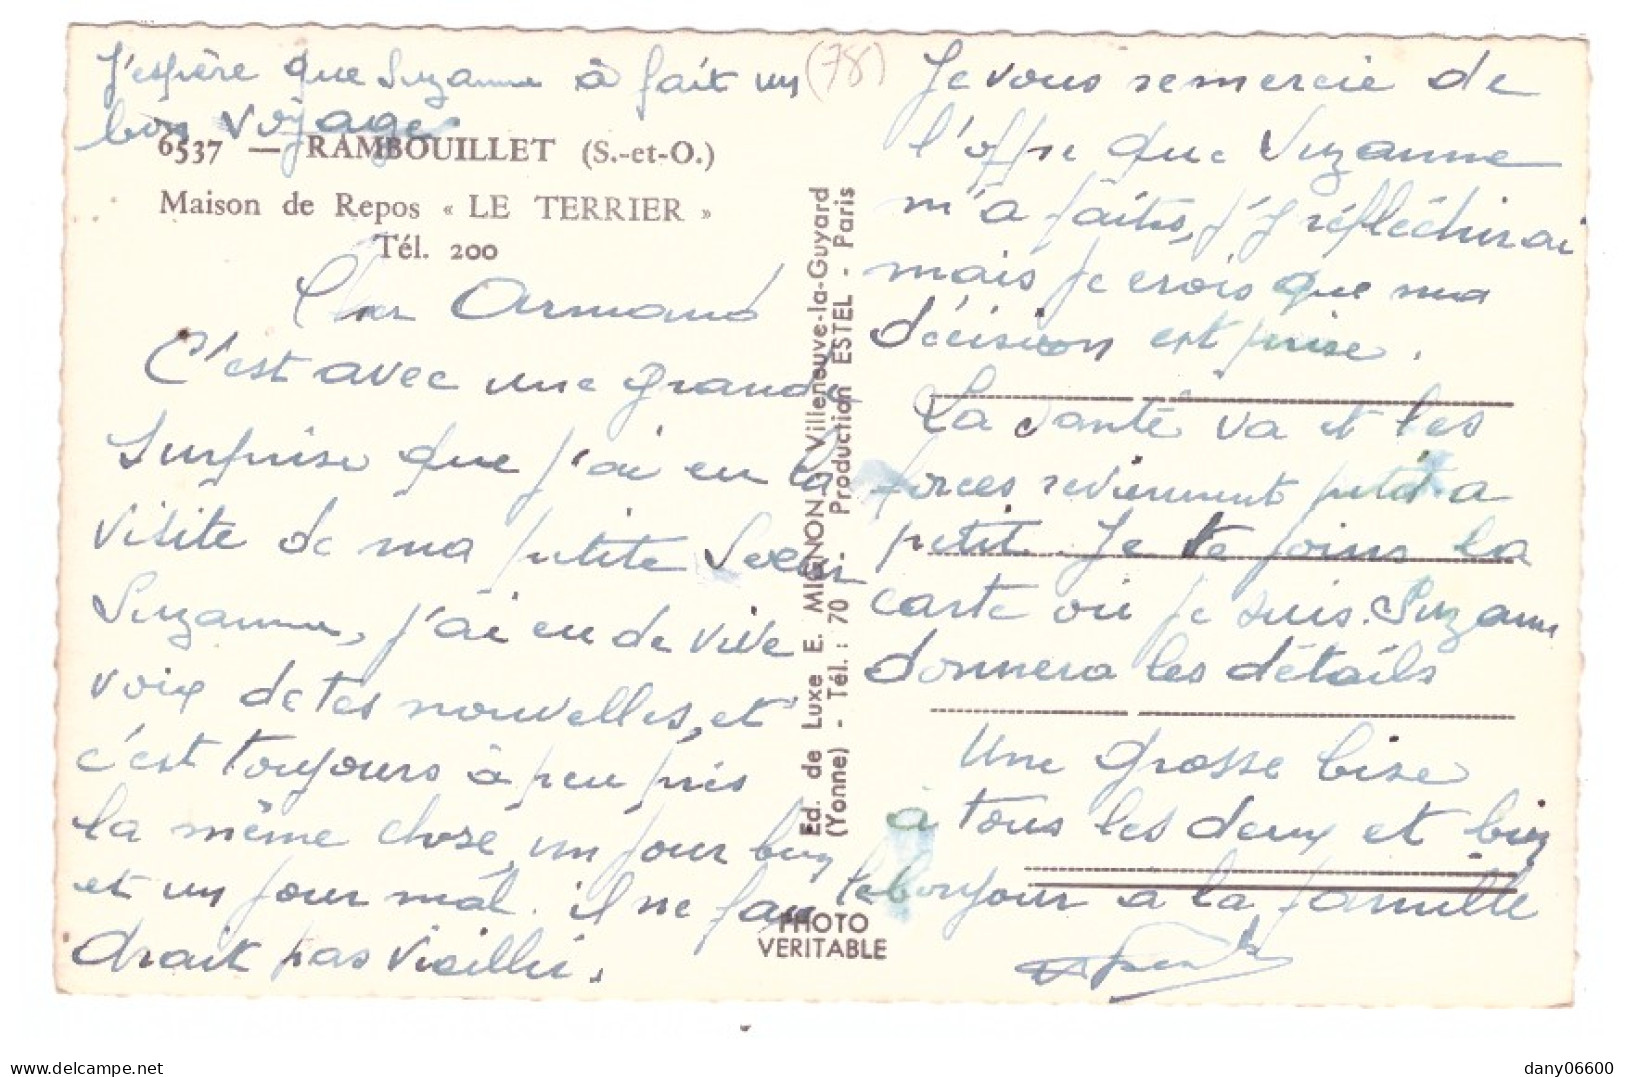 J'espère que Suzanne à fait un
bon voyage
(78)
6537 — RAMBOUILLET (S.-et-O.)
Maison de Repos « LE TERRIER »
Tél. 200
Cher Armand
C'est avec une grande
surprise que j'ai eu la
visite de ma petite Soeur
Suzanne, j'ai eu de vive
voix de tes nouvelles, et
c'est toujours à peu près
la même chose, un jour bien
et un jour mal. il ne fau
drait pas vieillir.
Ed. de Luxe E. MIGNON, Villeneuve-la-Guyard
(Yonne) - Tél. : 70 - Production ESTEL - Paris
PHOTO
VERITABLE
Je vous remercie de
l'offre que Suzanne
m'a faites, j'y réfléchirai
mais je crois que ma
décision est prise.
La santé va et les
forces reviennent petit a
petit. Je te joins la
carte où je suis. Suzanne
donnera les détails
Une grosse bise
à tous les deux et bien
le bonjour à la famille
www.delcampe.net
dany06600